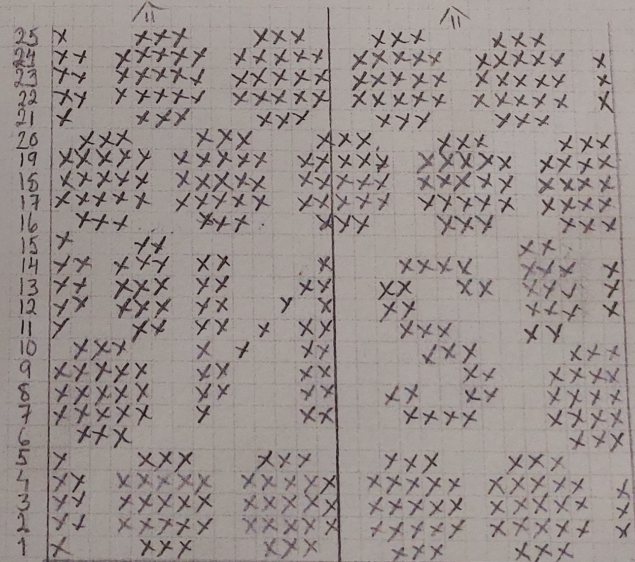 25
24
23
22
21
20
19
18
17
16
15
14
13
12
11
10
9
8
7
6
5
4
3
2
1